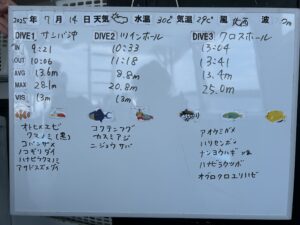 2025年 7月 14日 天気 水温 30℃ 気温 29℃ 風 波 2m
DIVE1 サンバ沖 DIVE2 ツインホール DIVE3 クロスホール
IN 9:21 10:33 13:04
OUT 10:06 11:18 13:41
AVG 13.6m 8.8m 13.4m
MAX 28.1m 20.8m 25.0m
VIS 13m 13m
オトヒメエビ コクテンフグ アオウミガメ
クマノミ(黒) カスミアジ ハリセンボン
コバンザメ ニジョウサバ
ノコギリダイ ハナビラウツボ
ハナビラクマノミ オグロクロユリハゼ
アマミスズメダイ